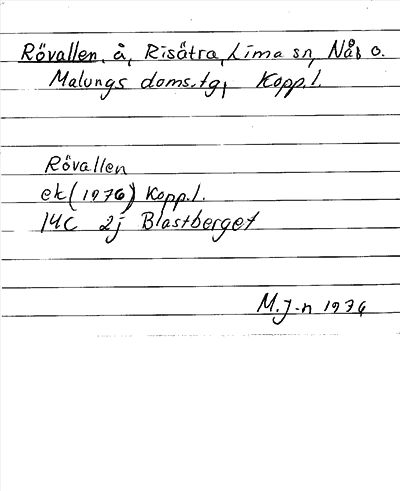 Rövallen, å, Risätra, Lima sn, Nås o.
Malungs doms.tg, Kopp.l.
Rövallen
ek (1976) Kopp.l.
14C 2j Blastberget
M.J-n 1976